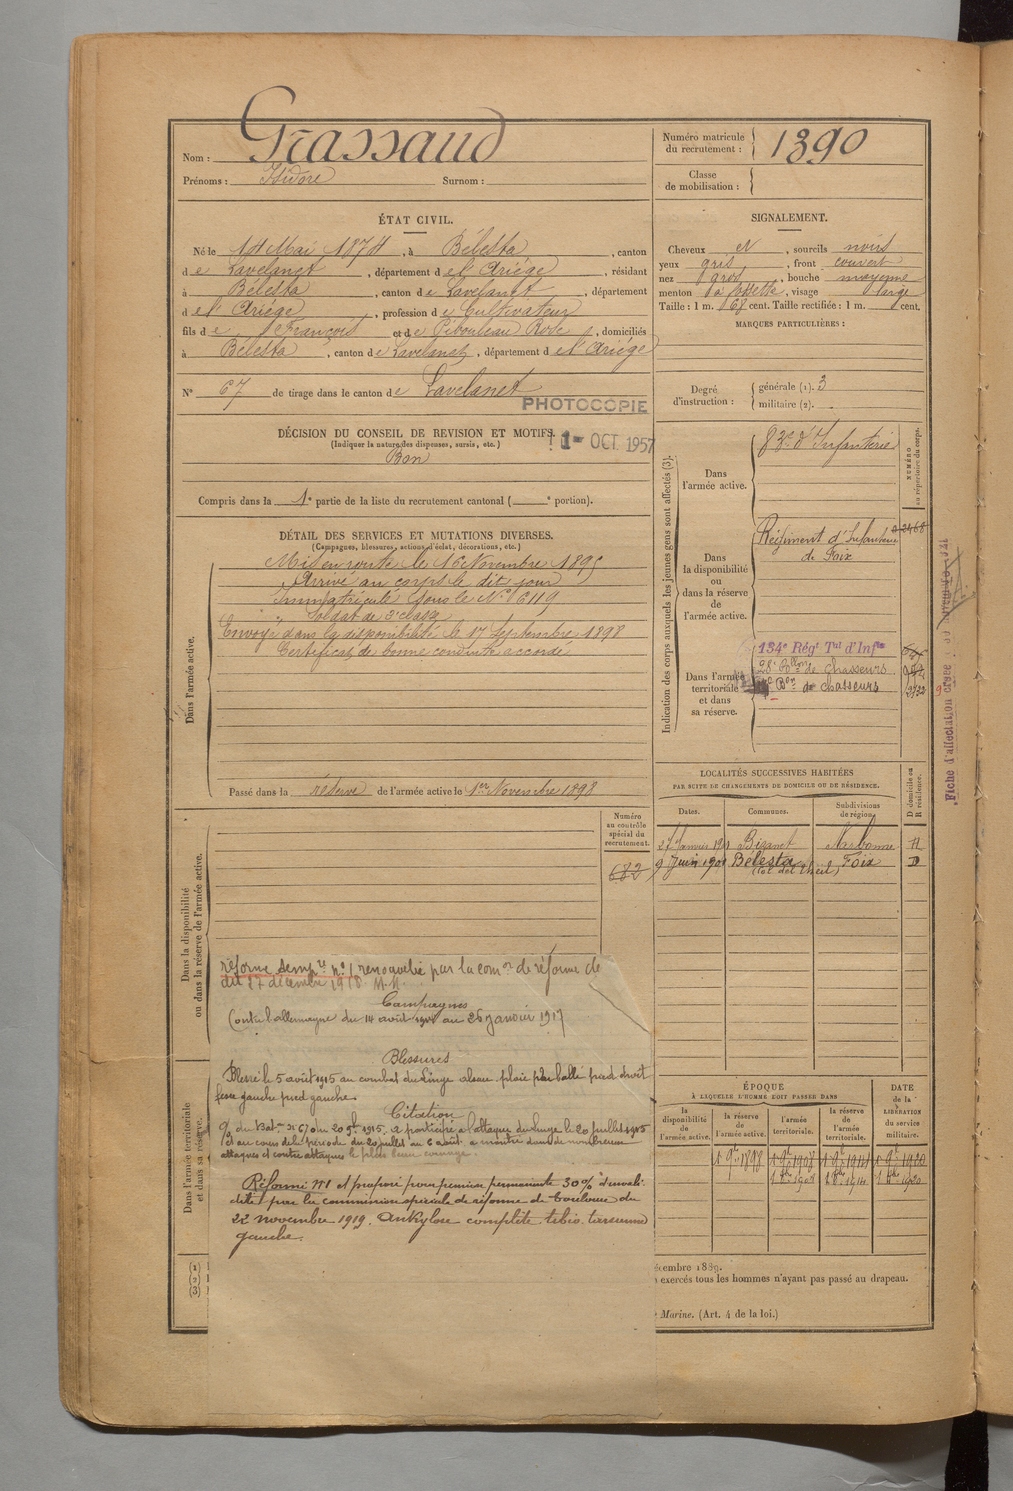 Nom : Grassaud
Prénoms : Isidore Surnom :
Numéro matricule du recrutement : 1390
Classe de mobilisation :
ÉTAT CIVIL.
Né le 14 Mai 1874, à Bélesta, canton
de Lavelanet, département de l'Ariége, résidant
à Bélesta, canton de Lavelanet, département
de l'Ariége, profession de Cultivateur
fils de François et de Pibouleau Rose, domiciliés
à Bélesta, canton de Lavelanet, département de l'Ariége
N° 67 de tirage dans le canton de Lavelanet
PHOTOCOPIE
1- OCT 1957
DÉCISION DU CONSEIL DE REVISION ET MOTIFS.
(Indiquer la nature des dispenses, sursis, etc.)
Bon
Compris dans la 1e partie de la liste du recrutement cantonal ( e portion).
DÉTAIL DES SERVICES ET MUTATIONS DIVERSES.
(Campagnes, blessures, actions d'éclat, décorations, etc.)
Dans l'armée active.
Mis en route le 16 Novembre 1895
Arrivé au corps le dit jour
Immatriculé sous le N° 6119
Soldat de 2e classe
Envoyé dans la disponibilité le 17 Septembre 1898
Certificat de bonne conduite accordé
Passé dans la réserve de l'armée active le 1er Novembre 1898
Numéro au contrôle spécial du recrutement.
682
Dans la disponibilité ou dans la réserve de l'armée active.
réforme tempre n° 1 renouvelée par la comon de réforme de
du 27 décembre 1918.
Campagnes
Contre l'allemagne du 14 août au 26 janvier 1917
Blessures
Blessé le 5 août 1915 au combat du Linge alsace plaie par balle pied droit
fesse gauche pied gauche.
Citation
du Baton n° 67 du 20 7bre 1915. a participé à l'attaque du Linge le 20 juillet 1915
et au cours de la période du 20 juillet au 6 août a montré dans de nombreuses
attaques et contre attaques le plus beau courage.
Réformé n°1 et proposé pour pension permanente 30% d'invali
dité par la commission spéciale de réforme de Toulouse du
22 novembre 1919. Ankylose complète tibio. tarsienne
gauche.
Dans l'armée territoriale et dans sa réserve.
(1)
(2)
(3)
SIGNALEMENT.
Cheveux et, sourcils noirs
yeux gris, front couvert
nez gros, bouche moyenne
menton à fossette, visage large
Taille : 1 m. 68 cent. Taille rectifiée : 1 m. cent.
MARQUES PARTICULIÈRES :
Degré d'instruction : générale (1). 3
militaire (2).
Indication des corps auxquels les jeunes gens sont affectés (3).
NUMÉRO au répertoire du corps.
Dans l'armée active. 83e d'Infanterie
Dans la disponibilité ou dans la réserve de l'armée active.
Régiment d'Infanterie
de Foix
2468
Dans l'armée territoriale et dans sa réserve.
134e Régt Tal d'Infie
28e Bllon de Chasseurs
Bon de chasseurs
Fiche d'affectation
LOCALITÉS SUCCESSIVES HABITÉES
PAR SUITE DE CHANGEMENTS DE DOMICILE OU DE RÉSIDENCE.
Dates. Communes. Subdivisions de région. D domicile ou R résidence.
27 Janvier 1901 Bizanet Narbonne R
9 Juin 1901 Bélesta Foix D
ÉPOQUE
À LAQUELLE L'HOMME DOIT PASSER DANS
la disponibilité de l'armée active. la réserve de l'armée active. l'armée territoriale. la réserve de l'armée territoriale.
DATE de la LIBÉRATION du service militaire.
1 9bre 1898 1 9bre 1908 1 9bre 1914 1 9bre 1920
1 8bre 1908 1 8bre 1914 1 8bre 1920
écembre 1889.
exercés tous les hommes n'ayant pas passé au drapeau.
Marine. (Art. 4 de la loi.)